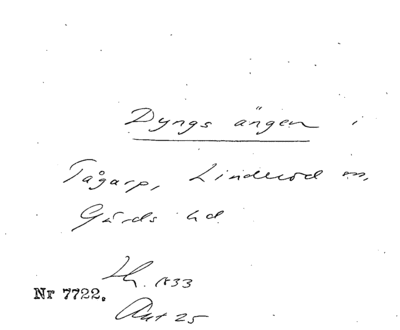 Dyngs ängen i
Tågarp, Linderöd sn,
Gärds hd
Lh. 1833
Nr 7722.
Akt 25